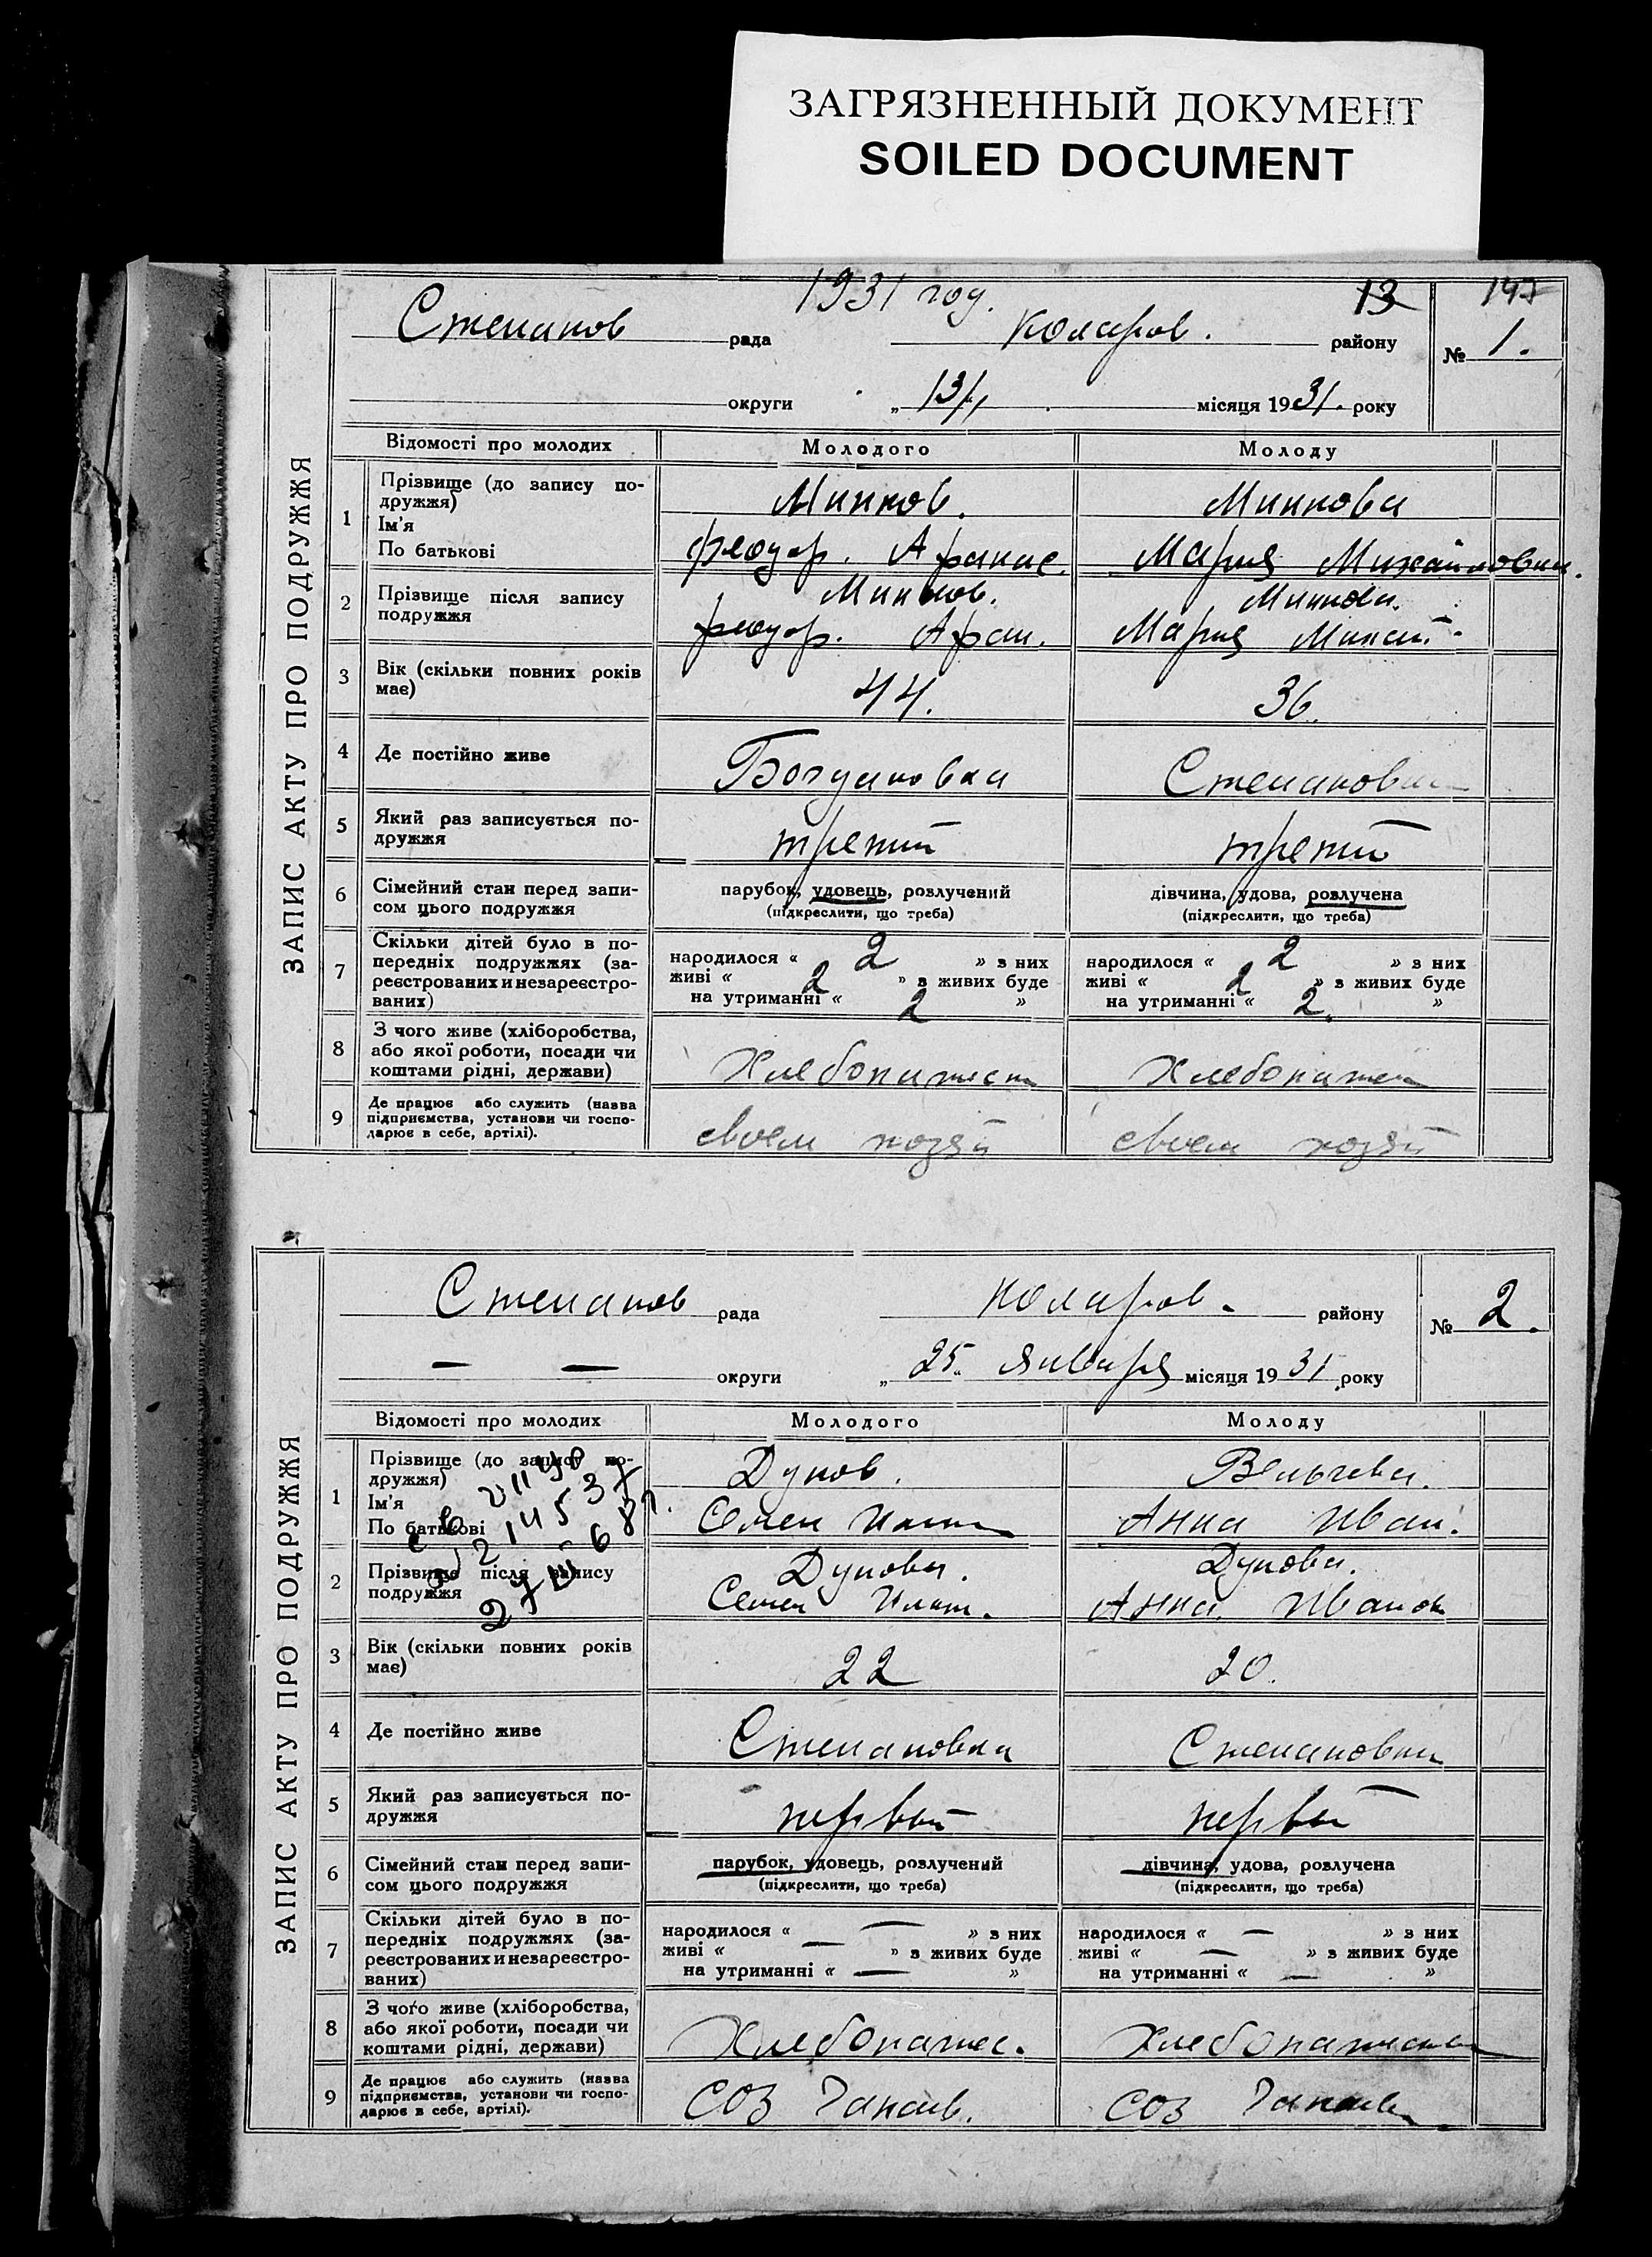 ЗАГРЯЗНЕННЫЙ ДОКУМЕНТ
SOILED DOCUMENT
1931 год. 13 147
Степанов рада Коларов. району № 1.
округи „13/„ місяця 1931. року
ЗАПИС АКТУ ПРО ПОДРУЖЖЯ
Відомості про молодих Молодого Молоду
1 Прізвище (до запису по-
дружжя) Минков. Минкова
Ім'я
По батькові Феодор. Афанас. Мария Михайловна.
2 Прізвище після запису Минков. Минкова.
подружжя Феодор. Афан. Мария Михай.
3 Вік (скільки повних років
має) 44. 36.
4 Де постійно живе Богдановка Степановка
5 Який раз записується по-
дружжя третий третий
6 Сімейний стан перед запи- парубок, удовець, розлучений дівчина, удова, розлучена
сом цього подружжя (підкреслити, що треба) (підкреслити, що треба)
7 Скільки дітей було в по-
передніх подружжях (за- народилося « 2 » з них народилося « 2 » з них
реєстрованих и незареєстро- живі « 2 » з живих буде живі « 2 » з живих буде
ваних) на утриманні « 2 » на утриманні « 2. »
8 З чого живе (хліборобства,
або якої роботи, посади чи
коштами рідні, держави) Хлебопашест Хлебопашест
9 Де працює або служить (назва
підприємства, установи чи госпо-
дарює в себе, артілі). своем хозяй своем хозяй
Степанов рада Коларов. району № 2.
— — округи „25„ Января місяця 1931 року
ЗАПИС АКТУ ПРО ПОДРУЖЖЯ
Відомості про молодих Молодого Молоду
1 Прізвище (до запису по-
дружжя) Дунов. Вельчева.
Ім'я
По батькові Семен Анна Иван.
2 Прізвище після запису Дуновы. Дунова.
подружжя Семен Анна Иванов
3 Вік (скільки повних років
має) 22 20.
4 Де постійно живе Степановка Степановка
5 Який раз записується по-
дружжя первый первый
6 Сімейний стан перед запи- парубок, удовець, розлучений дівчина, удова, розлучена
сом цього подружжя (підкреслити, що треба) (підкреслити, що треба)
7 Скільки дітей було в по-
передніх подружжях (за- народилося « — » з них народилося « — » з них
реєстрованих и незареєстро- живі « — » з живих буде живі « — » з живих буде
ваних) на утриманні « — » на утриманні « — »
8 З чого живе (хліборобства,
або якої роботи, посади чи
коштами рідні, держави) Хлебопашес. Хлебопашест
9 Де працює або служить (назва
підприємства, установи чи госпо-
дарює в себе, артілі). СОЗ СОЗ